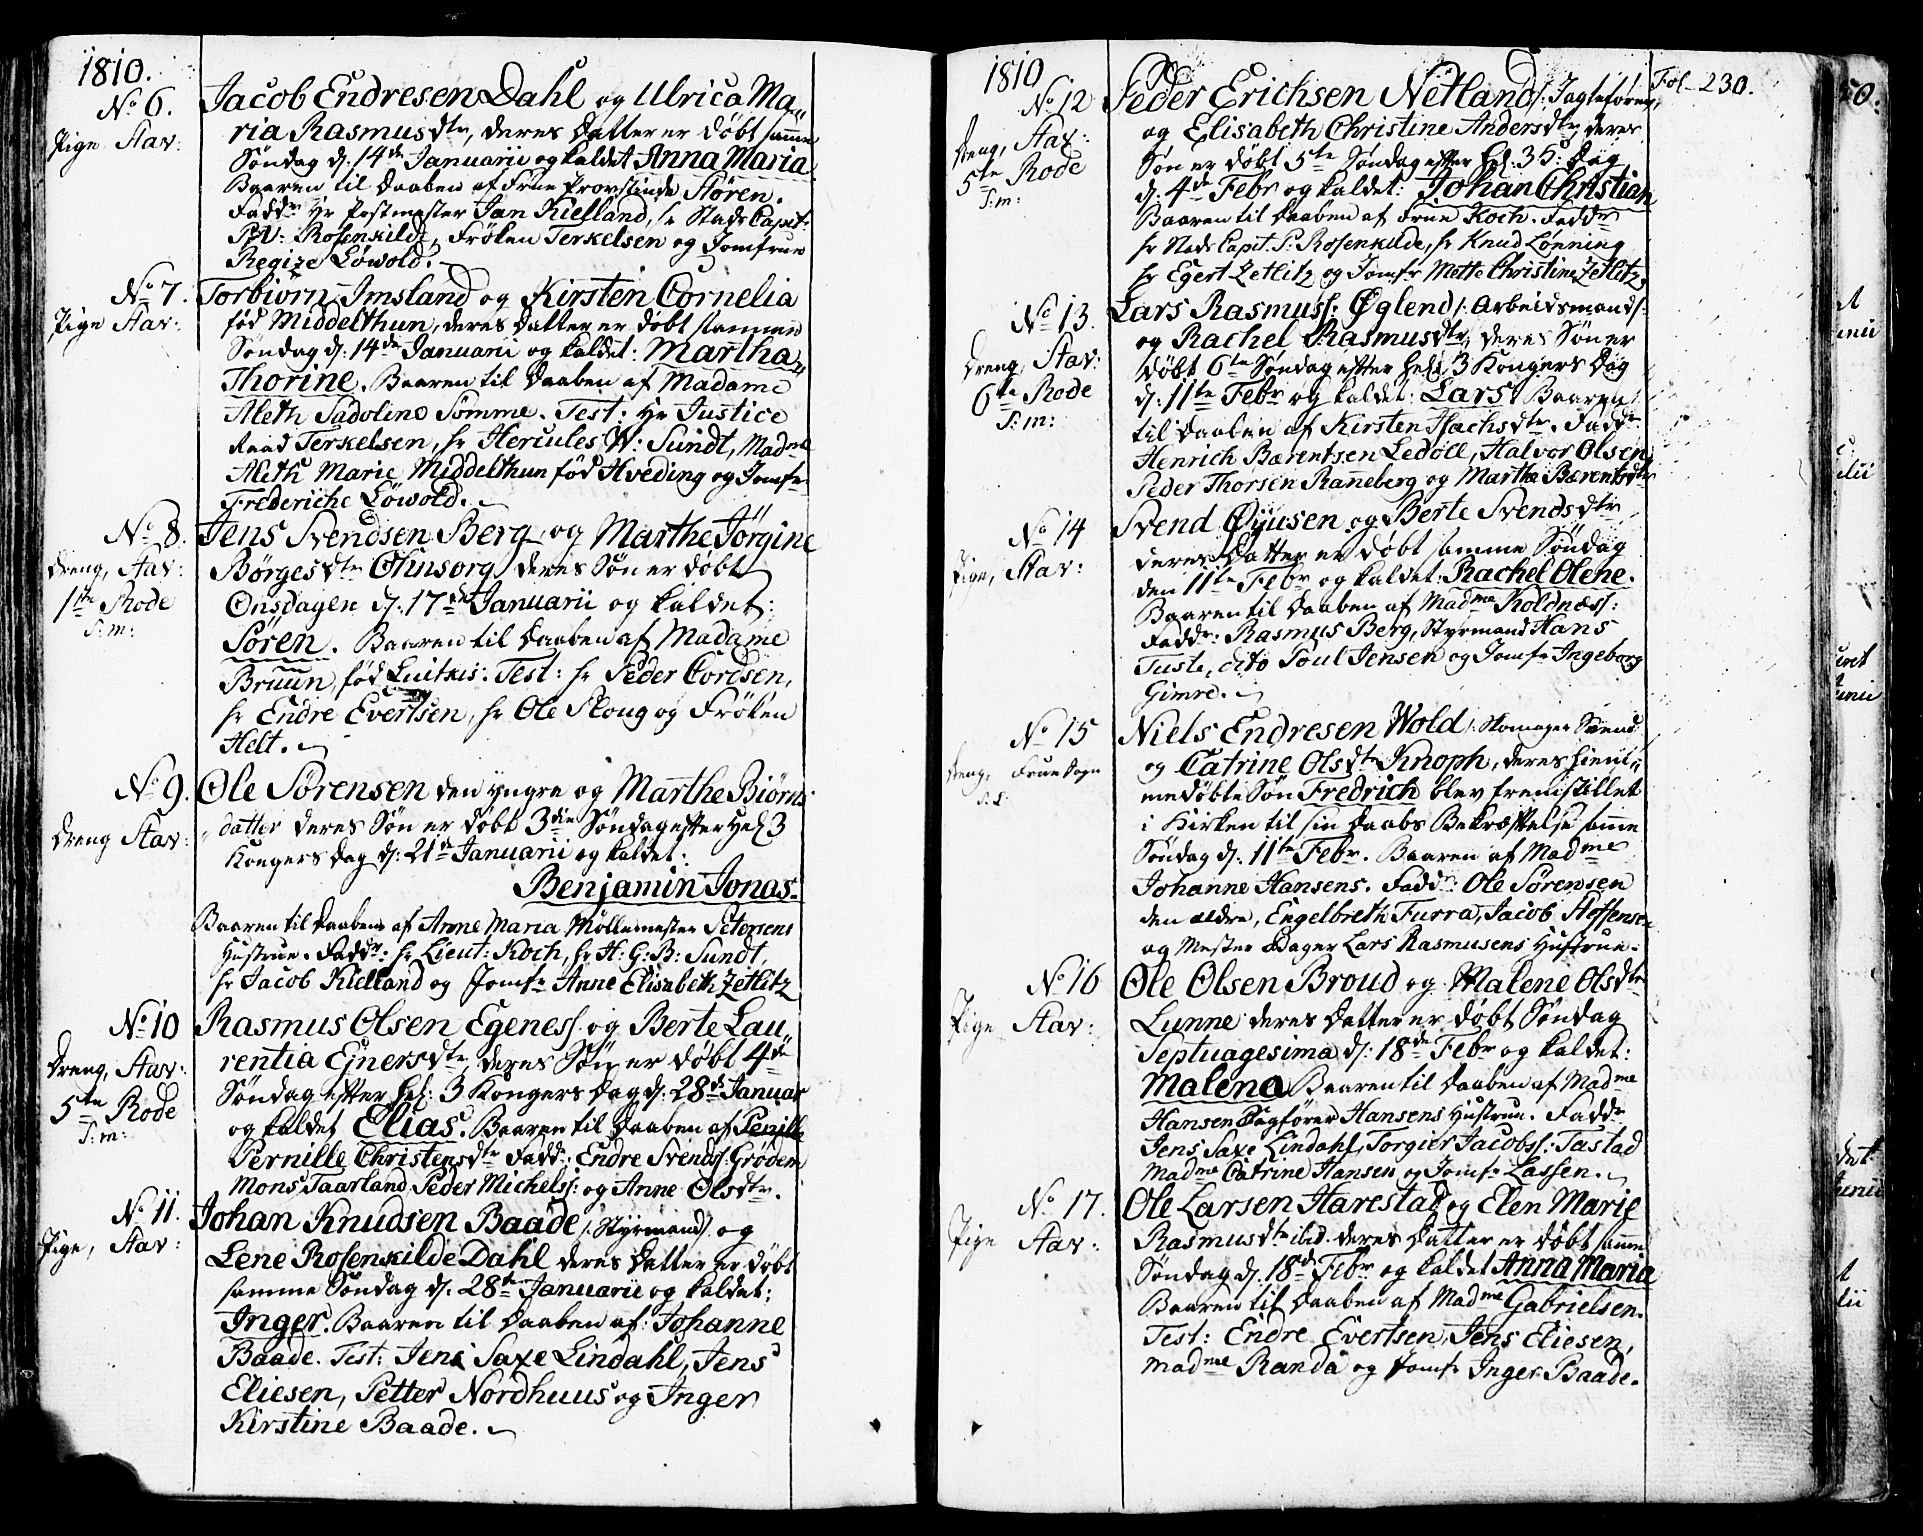 1810.
No 6.
Pige Stav:
Jacob Endresen Dahl og Ulrica Ma„
ria Rasmusdtr, deres Datter er døbt samme
Søndag d: 14de Januarii og kaldet Anna Maria
Baaren til Daaben af Frue Provstinde Støren.
Faddr Hr Postmester Jan Kielland, hr Stads Capit:
P.V: Rosenkilde, Frøken Terkelsen og Jomfrue
Regize Løwold.
No 7.
Pige Stav:
Torbiørn Imsland og Kirsten Cornelia
fød Middelthun, deres Datter er døbt samme
Søndag d: 14de Januarii og kaldet: Martha„
Thorine. Baaren til Daaben af Madame
Aleth Sadoline Sømme. Test: Hr Justice
Raad Terkelsen, hr Hercules W: Sundt, Madme
Aleth Marie Middelthun fød Hveding og Jomfr
Frederiche Løwold.
No 8.
Dreng, Stav:
1ste Rode
S:m:
Jens Svendsen Berg og Marthe Jørgine
Børgesdtr Ohnsorg deres Søn er døbt
Onsdagen d: 17de Januarii og kaldet:
Søren. Baaren til Daaben af Madame
Bruun, fød Test: hr Peder Cordsen,
hr Endre Evertsen, hr Ole Skoug og Frøken
Helt.
No 9.
Dreng Stav:
Ole Sørensen den yngre og Marthe Biørns
„datter deres Søn er døbt 3die Søndag efter Hel: 3
Kongers Dag d: 21de Januarii og kaldet:
Benjamin Jonas.
Baaren til Daaben af Anne Maria Møllemester Petersens
Hustrue. Faddr: hr Lieut: Koch, hr H: G: B: Sundt,
hr Jacob Kielland og Jomfr Anne Elisabeth Zetlitz
No 10
Dreng, Stav:
5te Rode
S:m:
Rasmus Olsen Egenes/: og Berte Lau„
rentia Ejnersdtr, deres Søn er døbt 4de
Søndag efter Hel: 3 Kongers Dag d: 28de Januar
og kaldet Elias. Baaren til Daaben af Penille
Pernille Christensdtr Faddr: Endre Svends: Grødem
Mons Taarland, Peder Michels: og Anne Olsdtr.
No 11.
Pige, Stav:
Johan Knudsen Baade /: Styrmand:/ og
Lene Rosenkilde Dahl deres Datter er døbt
samme Søndag d: 28de Januarii og kaldet:
Inger. Baaren til Daaben af: Johanne
Baade. Test: Jens Saxe Lindahl, Jens
Eliesen, Petter Nordhuus og Inger
Kirstine Baade.
1810
Fol. 230.
No 12
Dreng, Stav:
5te Rode
S:m:
Peder Erichsen Netland /: Jagtefører,
og Elisabeth Christine Andersdtr, deres
Søn er døbt 5te Søndag efter Hel: 3K: Dag
d: 4de Febr og kaldet: Johan Christian
Baaren til Daaben af Frue Koch. Faddr
hr Stads Capit. P: Rosenkilde, hr Knud Lønning
hr Egert Zetlitz og Jomfr Mette Christine Zetlitz.
No 13.
Dreng, Stav:
6te Rode
S:m:
Lars Rasmus: Øglend /: Arbeidsmand:/
og Rachel Rasmusdtr, deres Søn er
døbt 6te Søndag efter Hel: 3 Kongers Dag
d: 11te Febr og kaldet: Lars. Baaren
til Daaben af Kirsten Isachsdtr. Faddr
Henrich Bærentsen Ledøll, Halvor Olsen
Peder Thorsen Ranneberg og Martha Bærentsdtr
No 14
Pige, Stav:
Svend Øyusen og Berte Svendsdtr
deres Datter er døbt samme Søndag
den 11te Febr og kaldet: Rachel Olene.
Baaren til Daaben af Madme Koldnæs:
Faddr: Rasmus Berg, Styrmand Hans
Tuste, dito Poul Jensen og Jomfr Ingeborg
Gimre.
No 15
Dreng, Frue Sogn
S.S:
Niels Endresen Wold /: Skomager Svend:
og Catrine Olsdtr Knoph, deres hiem„
medøbte Søn Fredrich blev fremstillet
i Kirken til sin Daabs Bekræftelse samme
Søndag d: 11te Febr. Baaren af Madme
Johanne Hansens. Faddr: Ole Sørensen
den ældre, Engelbreth Furra, Jacob Steffensen
og Mester Bager Lars Rasmusens Hustrue.
No 16
Pige Stav:
Ole Olsen Broud og Malene Olsdtr
Lunne deres Datter er døbt Søndag
Septuagesima d: 18de Febr og kaldet:
Malena. Baaren til Daaben af Madme
Hansen Bagfører Hansens Hustrue. Faddr
Jens Saxe Lindahl, Torgier Jacobs: Tastad
Madme Catrine Hansen og Jomfr Lassen.
No 17.
Pige Stav:
Ole Larsen Harestad og Elen Marie
Rasmusdtr ibid. deres Datter er døbt samme
Søndag d: 18de Febr og kaldet Anna Maria
Baaren til Daaben af Madme Gabrielsen.
Test: Endre Evertsen, Jens Eliesen,
Madme Randa og Jomfr Inger Baade.